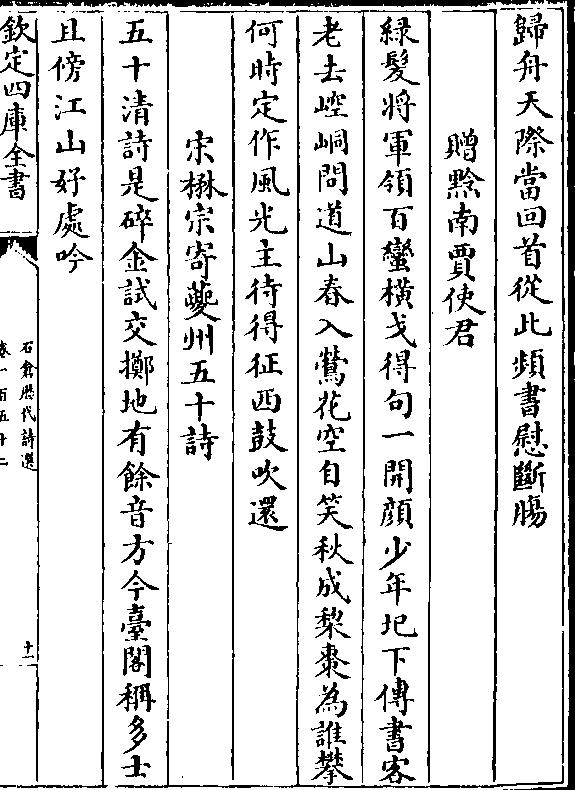 歸舟天際當回首從此頻書慰斷腸
贈黔南賈使君
綠髮將軍領百蠻横戈得句一開顔少年圯下傳書客
老去崆峒問道山春入鶯花空自笑秋成梨棗為誰攀
何時定作風光主待得征西鼓吹還
宋楙宗寄夔州五十詩
五十清詩是碎金試交擲地有餘音方今臺閣稱多士
且傍江山好處吟
欽定四庫全書
石倉歷代詩選
卷一百五十二
十一